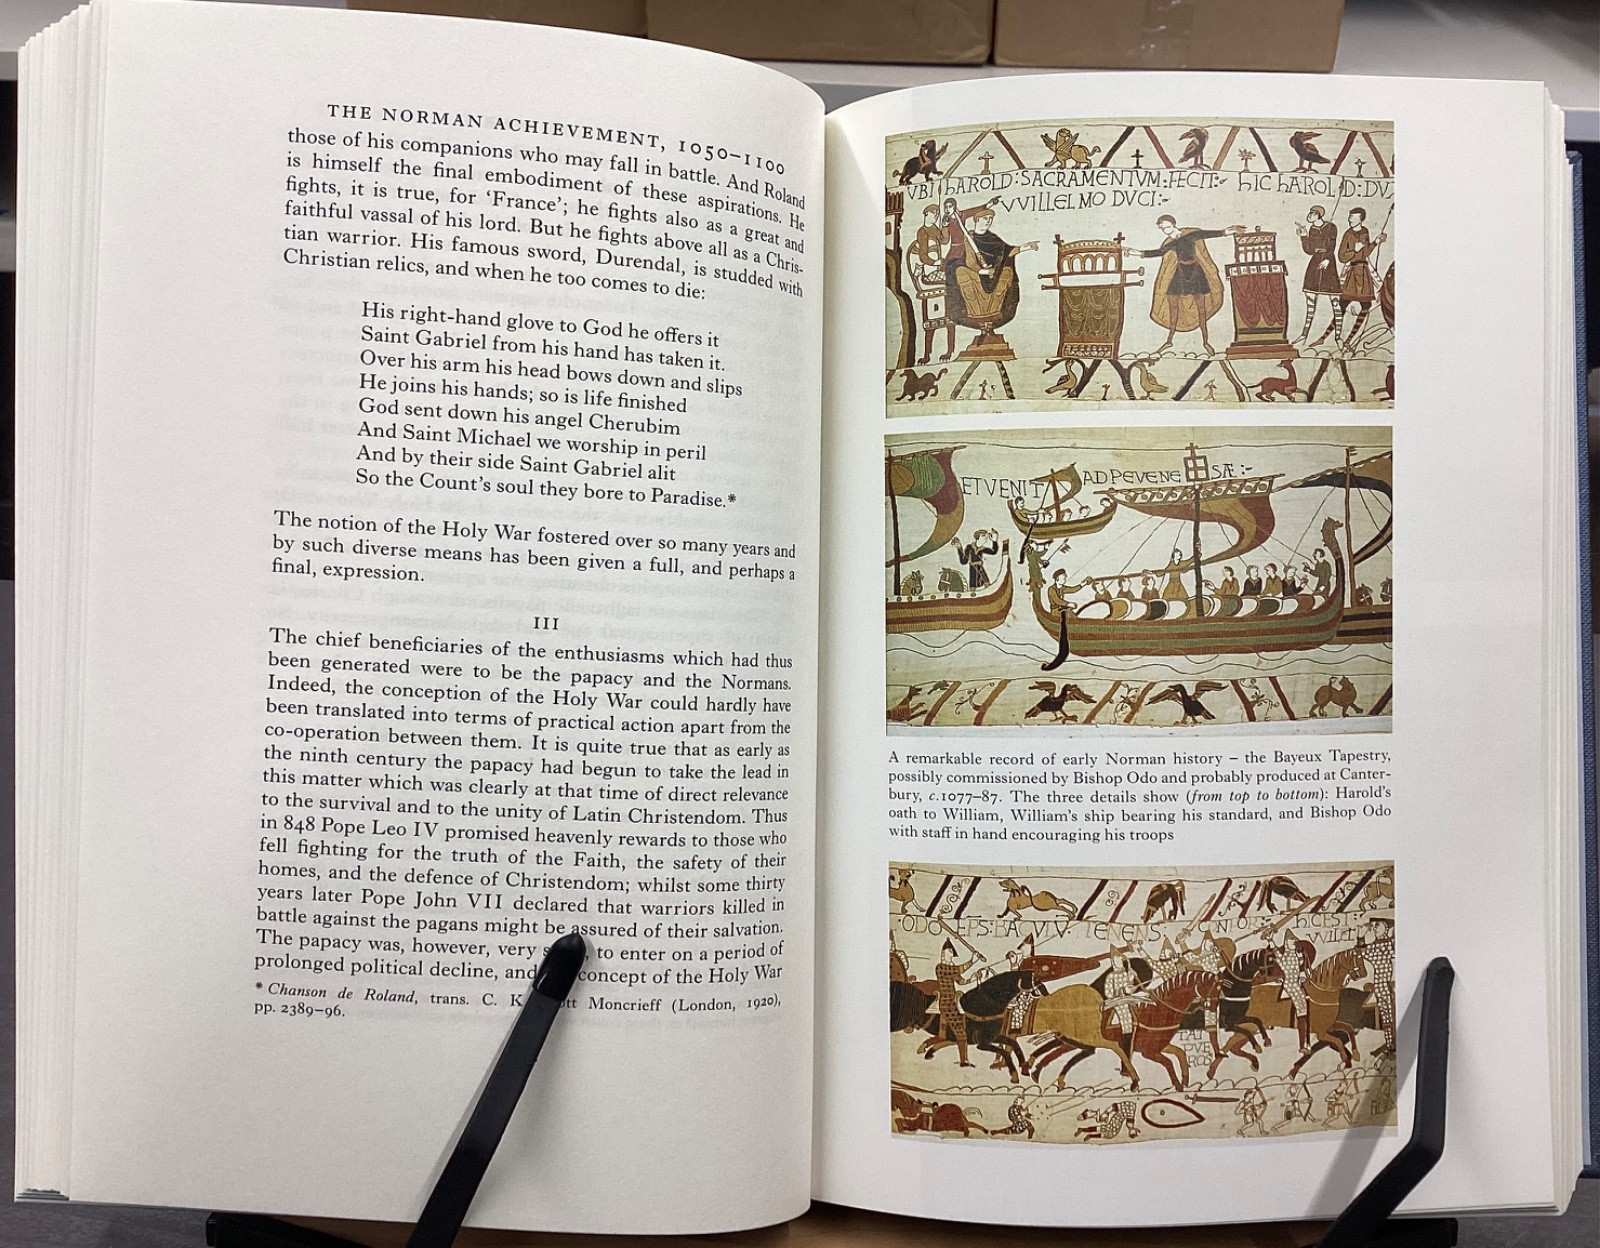 THE NORMAN ACHIEVEMENT, 1050–1100
those of his companions who may fall in battle. And Roland
is himself the final embodiment of these aspirations. He
fights, it is true, for ‘France’; he fights also as a great and
faithful vassal of his lord. But he fights above all as a Chris-
tian warrior. His famous sword, Durendal, is studded with
Christian relics, and when he too comes to die:
His right-hand glove to God he offers it
Saint Gabriel from his hand has taken it.
Over his arm his head bows down and slips
He joins his hands; so is life finished
God sent down his angel Cherubim
And Saint Michael we worship in peril
And by their side Saint Gabriel alit
So the Count’s soul they bore to Paradise.*
The notion of the Holy War fostered over so many years and
by such diverse means has been given a full, and perhaps a
final, expression.
III
The chief beneficiaries of the enthusiasms which had thus
been generated were to be the papacy and the Normans.
Indeed, the conception of the Holy War could hardly have
been translated into terms of practical action apart from the
co-operation between them. It is quite true that as early as
the ninth century the papacy had begun to take the lead in
this matter which was clearly at that time of direct relevance
to the survival and to the unity of Latin Christendom. Thus
in 848 Pope Leo IV promised heavenly rewards to those who
fell fighting for the truth of the Faith, the safety of their
homes, and the defence of Christendom; whilst some thirty
years later Pope John VII declared that warriors killed in
battle against the pagans might be assured of their salvation.
The papacy was, however, very to enter on a period of
prolonged political decline, and concept of the Holy War
* Chanson de Roland, trans. C. K. Moncrieff (London, 1920),
pp. 2389–96.
VBI hAROLD:SACRAMENTVM:FECIT:- hIC hAROLD:DV
VVILLELMO DVCI:-
ET VENIT AD PEVENE SÆ:-
A remarkable record of early Norman history – the Bayeux Tapestry,
possibly commissioned by Bishop Odo and probably produced at Canter-
bury, c.1077–87. The three details show (from top to bottom): Harold’s
oath to William, William’s ship bearing his standard, and Bishop Odo
with staff in hand encouraging his troops
ODO EPS: BACVLV TENENS: CONFOR- hIC EST:-
VVILEL
TAT
PVE
ROS